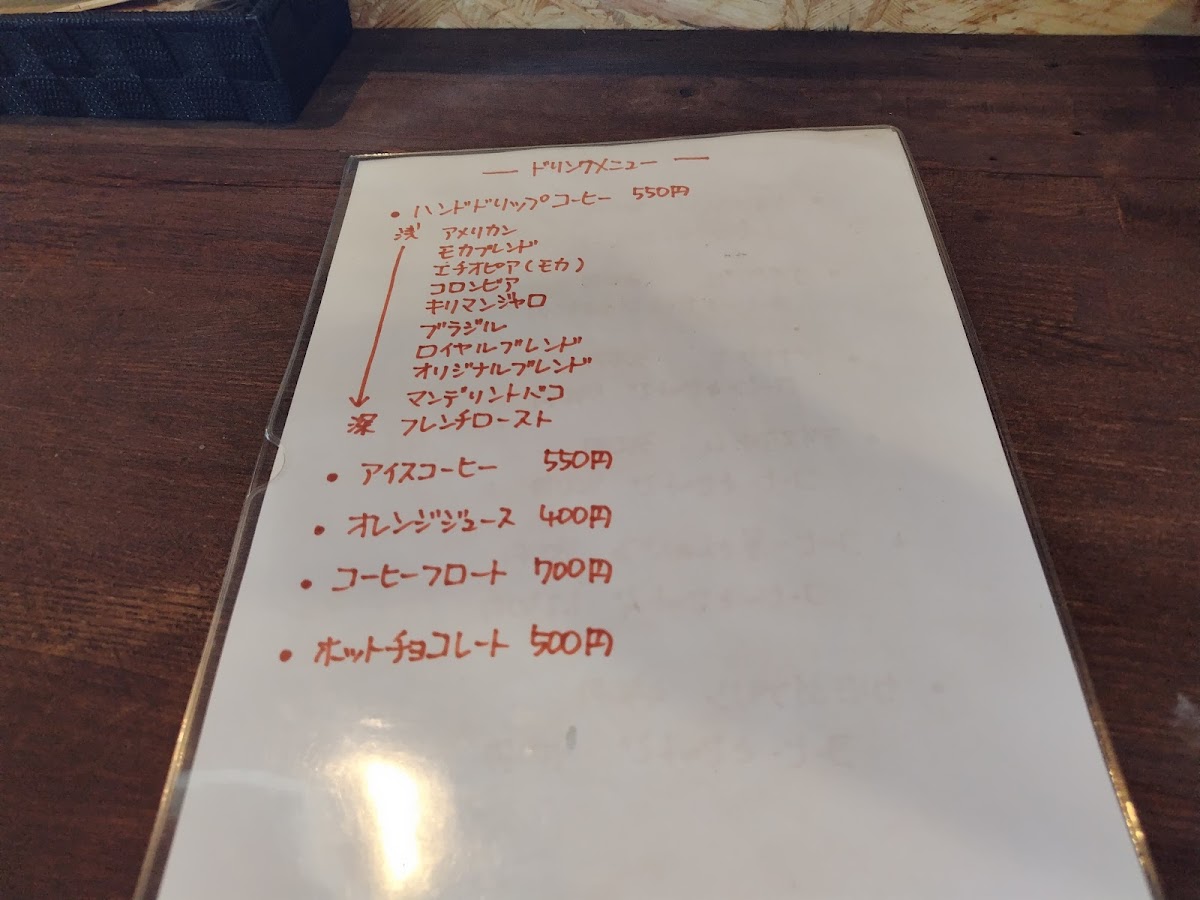 — ドリンクメニュー —
• ハンドドリップコーヒー 550円
浅 アメリカン
モカブレンド
エチオピア(モカ)
コロンビア
キリマンジャロ
ブラジル
ロイヤルブレンド
オリジナルブレンド
マンデリントバコ
深 フレンチロースト
• アイスコーヒー 550円
• オレンジジュース 400円
• コーヒーフロート 700円
• ホットチョコレート 500円